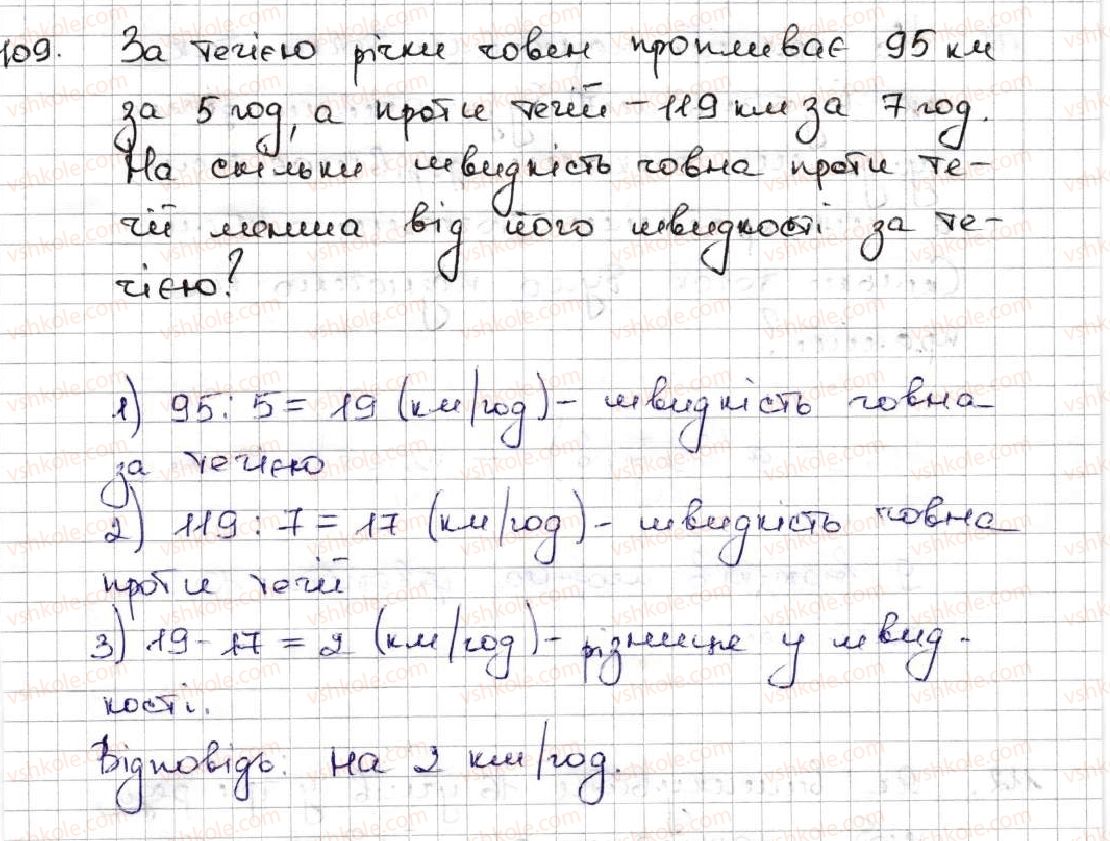 109. За течією річки човен пропливає 95 км
за 5 год, а проти течії – 119 км за 7 год.
На скільки швидкість човна проти те-
чії менша від його швидкості за те-
чією?
1) 95 : 5 = 19 (км/год) – швидкість човна
за течією
2) 119 : 7 = 17 (км/год) – швидкість човна
проти течії
3) 19 - 17 = 2 (км/год) – різниця у швид-
кості.
Відповідь: на 2 км/год.